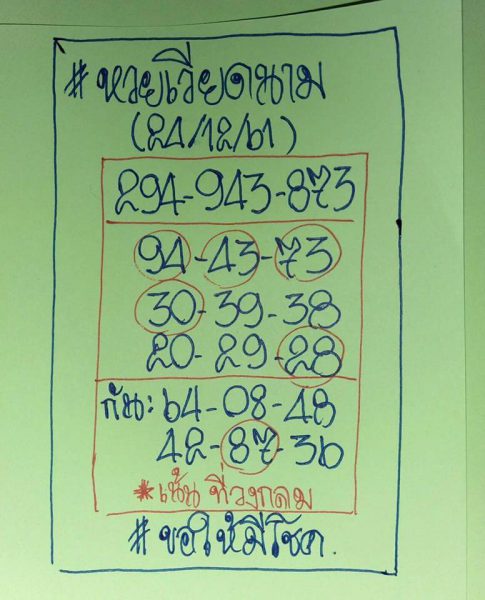 # หวยเวียดนาม
(24/12/61)
294-943-873
94-43-73
30-39-38
20-29-28
กัน: 64-08-48
42-87-36
*เน้น ที่วงกลม
# ขอให้มีโชค.